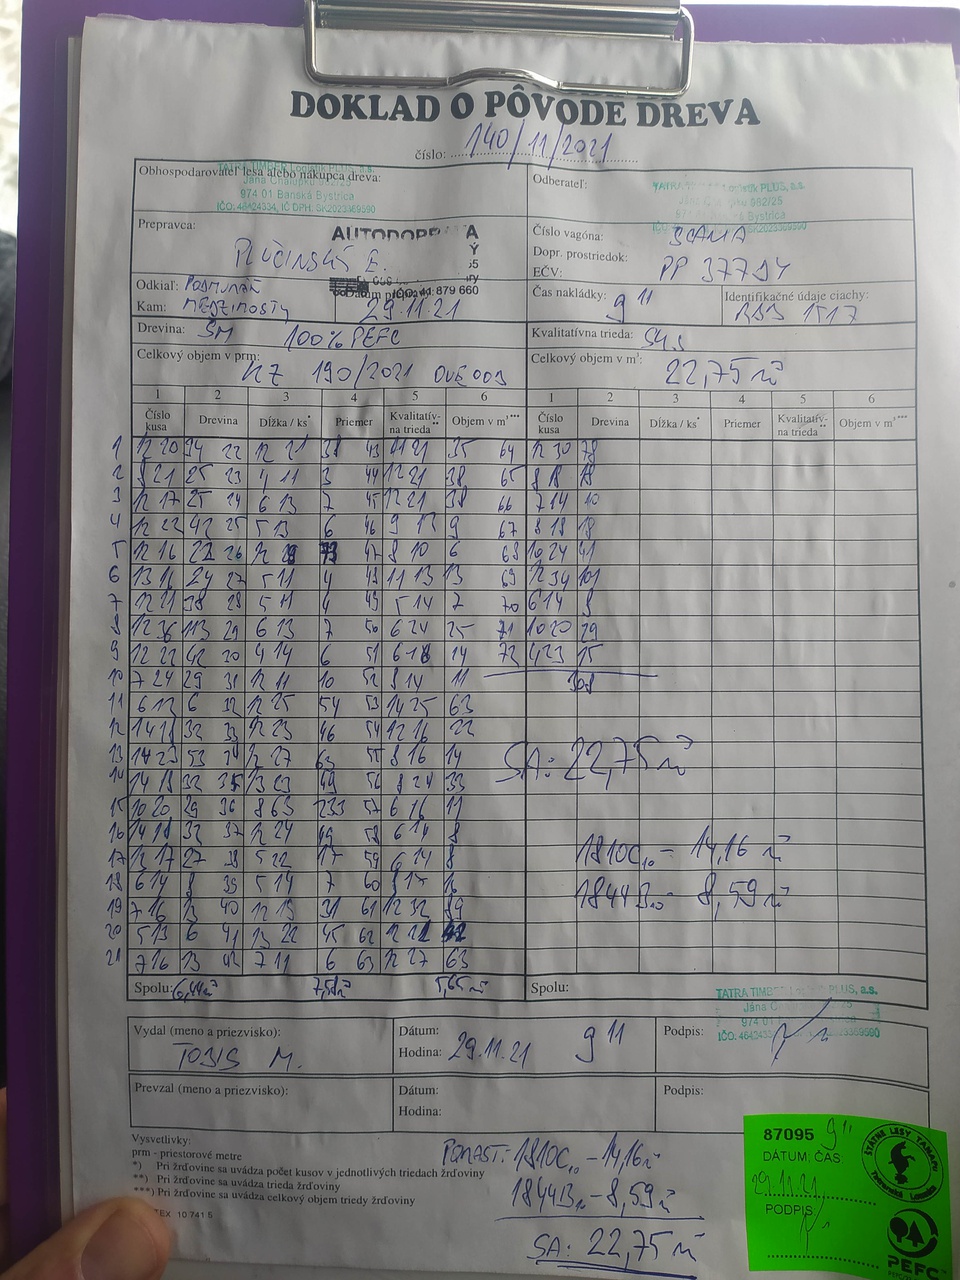 DOKLAD O PÔVODE DREVA
číslo: 140/11/2021
Obhospodarovateľ lesa alebo nákupca dreva:
TATRA TIMBER Logistik PLUS, a.s.
974 01 Banská Bystrica
IČO: 46424334, IČ DPH: SK2023369590
Odberateľ:
Logistik PLUS, a.s.
982/25
Bystrica
SK2023369590
Prepravca:
AUTODOPR
E.
IČO: 41 879 660
Číslo vagóna: SCANIA
Dopr. prostriedok:
EČV: PP 377DY
Odkiaľ:
Kam:
29.11.21
Čas nakládky: 9 11
Identifikačné údaje ciachy:
1517
Drevina: SM 100% PEFC
Kvalitatívna trieda:
Celkový objem v prm:
190/2021
Celkový objem v m³:
22,75 m³
1 2 3 4 5 6 1 2 3 4 5 6
Číslo kusa Drevina Dĺžka / ks* Priemer Kvalitatív- na trieda** Objem v m³*** Číslo kusa Drevina Dĺžka / ks* Priemer Kvalitatív- na trieda** Objem v m³***
1 12 20 34 22 12 21 38 43 11 21 35 64 12 30 78
2 8 21 25 23 4 11 3 44 12 21 38 65 8 18 18
3 12 17 25 24 6 13 7 45 12 21 38 66 7 14 10
4 12 22 42 25 5 13 6 46 9 13 9 67 8 18 18
5 12 16 22 26 12 47 8 10 6 68 10 24 41
6 13 16 24 27 5 11 4 48 11 13 13 69 12 34 101
7 12 21 38 28 5 11 4 49 5 14 7 70 6 14 8
8 12 36 113 29 6 13 7 50 6 24 25 71 10 20 29
9 12 22 42 30 4 14 6 51 6 18 14 72 4 23 15
10 7 24 29 31 12 11 10 52 8 14 11
308
11 6 12 6 32 12 25 54 53 14 25 63
12 14 18 32 33 12 23 46 54 12 16 22
13 14 23 53 34 12 27 63 55 8 16 14
SA: 22,75 m³
14 14 18 32 35 13 23 49 56 8 24 33
15 10 20 29 36 8 63 233 57 6 16 11
16 14 18 32 37 12 24 49 58 6 14 8
17 12 17 27 38 5 22 17 59 6 14 8
1810C10 - 14,16 m³
18 6 14 8 39 5 14 7 60 8 17 16
1844B10 - 8,59 m³
19 7 16 13 40 12 19 31 61 12 32 89
20 5 13 6 41 13 22 45 62 12
21 7 16 13 42 7 11 6 63 12 27 63
Spolu: 6,44 m³ 7,58 m³ 5,65 m³
Spolu:
TATRA TIMBER PLUS, a.s.
974 01
Vydal (meno a priezvisko):
M.
Dátum:
Hodina: 29.11.21 9 11
Podpis:
Prevzal (meno a priezvisko):
Dátum:
Hodina:
Podpis:
Vysvetlivky:
prm - priestorové metre
*) Pri žrďovine sa uvádza počet kusov v jednotlivých triedach žrďoviny
**) Pri žrďovine sa uvádza trieda žrďoviny
***) Pri žrďovine sa uvádza celkový objem triedy žrďoviny
10 741 5
PORAST: 1810C10 - 14,16 m³
1844B10 - 8,59 m³
SA: 22,75 m³
87095 9 11
DÁTUM, ČAS
29.11.21
PODPIS
ŠTÁTNE LESY TANAPU
Tatranská Lomnica
PEFC